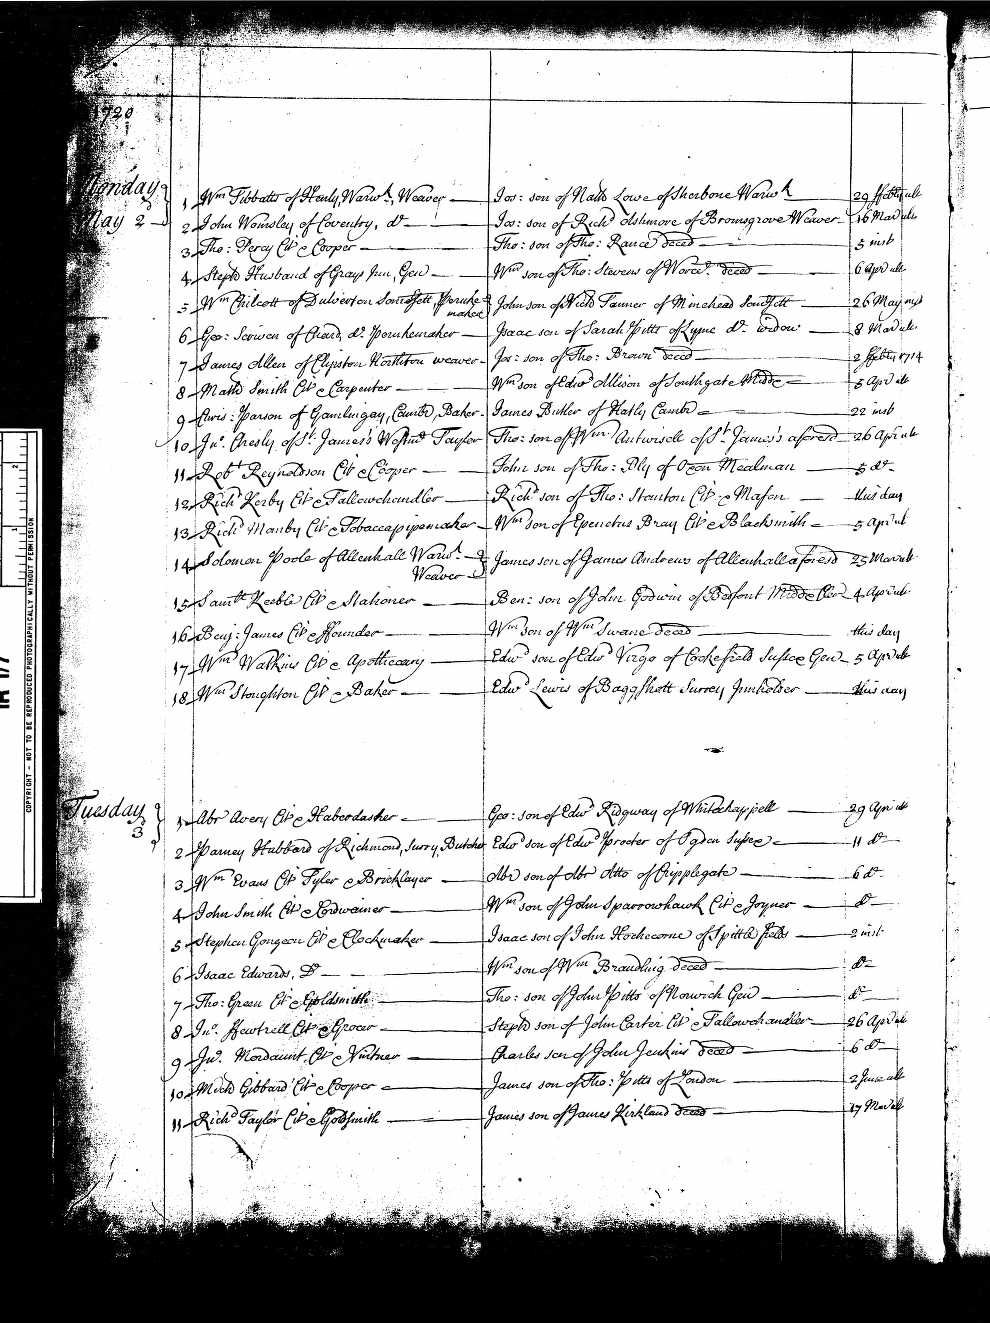 1720
Monday
May 2
1 Wm Tibbatts of Henly, Warwk, Weaver Jos: son of Nath Lowe of Sherbone Warwk 29 ffebry ult
2 John Wamsley of Coventry, do Jos: son of Richd Ashmore of Bromsgrove Weaver 16 Mar ult
3 Tho: Percy Cit & Cooper Tho: son of Tho: Rance decd 5 inst
4 Steph Husband of Grays Inn, Gen Wm son of Tho: Stevens of Worcr decd 6 Apr ult
5 Wm Chilcott of Dulverton Somersett Peruke
maker John son of Richd Tanner of Minehead Somsett 26 May
6 Geo: Scowen of Chard, do Perukemaker Isaac son of Sarah Pitts of Lyme do widow 8 Mar ult
7 James Allen of Clypston Northton weaver Jos: son of Tho: Brown decd 2 ffebry 1714
8 Math Smith Cit & Carpenter Wm son of Edwd Allison of Southgate Middx 5 Apr ult
9 Parson of Gamlingay, Cambr, Baker James Butler of Hatly Cambr 22 inst
10 Jno. Chesly of St. James's Westmr Taylor Tho: son of Wm Antwisell of St. James's aforesd 26 Apr ult
11 Robt Reynoldson Cit & Cooper John son of Tho: Ply of Oxon Mealman 5 do
12 Richd Kerby Cit & Tallowchandler Richd son of Tho: Stanton Cit & Mason this day
13 Richd Manby Cit & Tobaccopipemaker Wm son of Epenetus Bray Cit & Blacksmith 5 Apr ult
14 Solomon Poole of Allenhall Warwk
Weaver James son of James Andrews of Allenhall aforesd 25 Mar ult
15 Samll Keeble Cit & Stationer Ben: son of John Godwin of Bedfont Middx Cler 4 Apr ult
16 Benj: James Cit & ffounder Wm son of Wm Swane decd this day
17 Wm Watkins Cit & Apothecary Edwd son of Edwd Virgo of Cookefield Sussex Gen 5 Apr ult
18 Wm Stoughton Cit & Baker Edwd Lewis of Baggshott Surrey Innholder this day
Tuesday
3
1 Abr Avery Cit & Haberdasher Geo: son of Edwd Ridgway of Whitechappell 29 Apr ult
2 Parney Hubbard of Richmond, Surry, Butcher Edwd son of Edwd Procter of Ogden Sussex 11 do
3 Wm Evans Cit Tyler & Bricklayer Abr son of Abr Atto of Cripplegate 6 do
4 John Smith Cit & Cordwainer Wm son of John Sparrowhawk Cit & Joyner do
5 Stephen Gongeon Cit & Clockmaker Isaac son of John Hochecorne of Spittlefields 2 inst
6 Isaac Edwards, Do Wm son of Wm Brandling decd do
7 Tho: Green Cit & Goldsmith Tho: son of John Pitts of Norwich Gen do
8 Jno. ffewtrell Cit & Grocer Steph son of John Carter Cit & Tallowchandler 26 Apr ult
9 Jno. Mordaunt, Cit & Vintner Charles son of John Jenkins decd 6 do
10 Mich Gibbard Cit & Cooper James son of Tho: Pitts of London 2 June ult
11 Richd Taylor Cit & Goldsmith James son of James Kirkland decd 17 Mar ult
COPYRIGHT - NOT TO BE REPRODUCED PHOTOGRAPHICALLY WITHOUT PERMISSION
IR 1/7
1
2